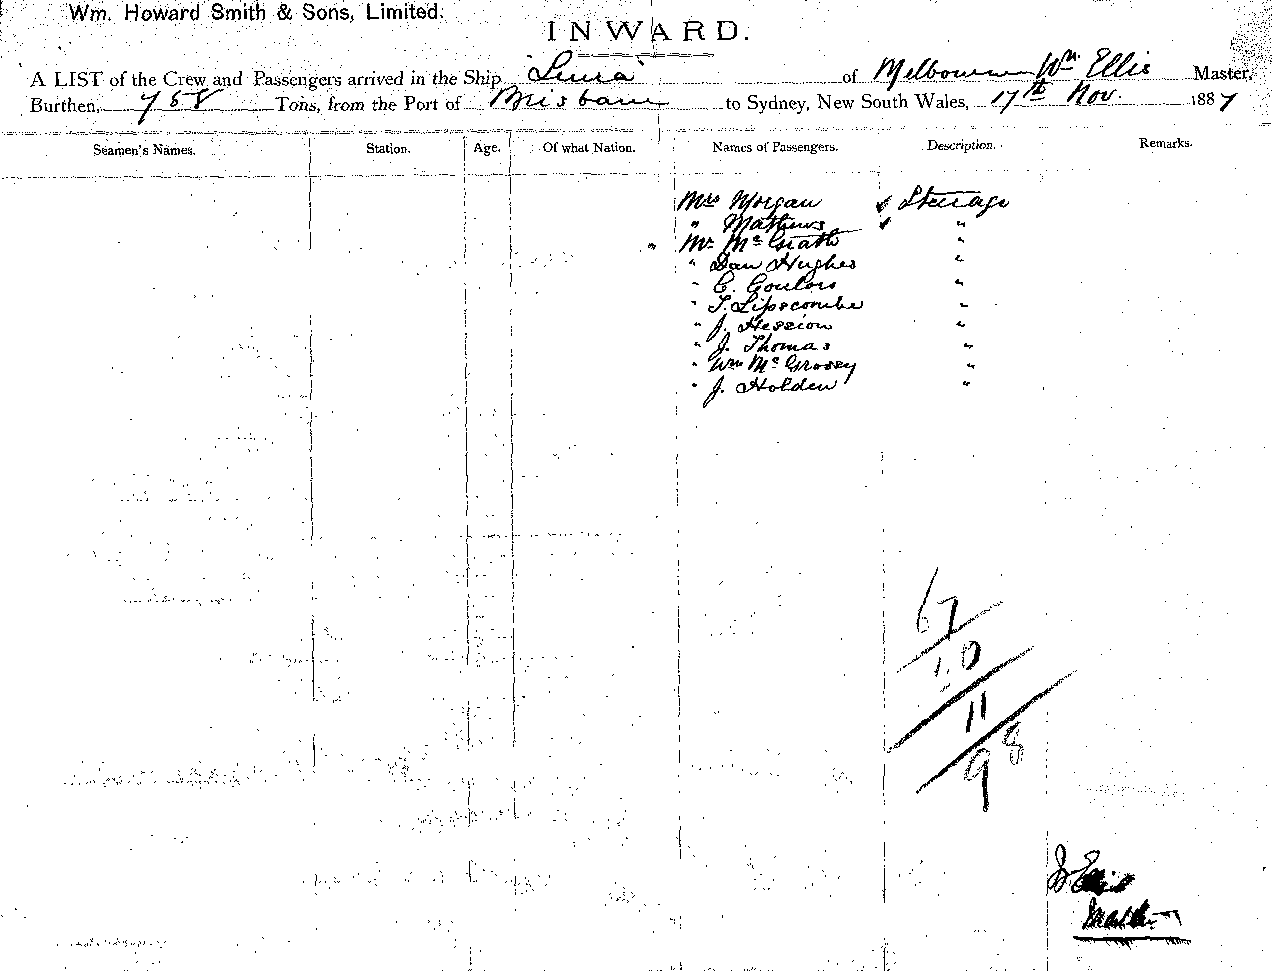 Wm. Howard Smith & Sons, Limited.
INWARD.
A LIST of the Crew and Passengers arrived in the Ship "Leura" of Melbourne Wm Ellis Master,
Burthen, 758 Tons, from the Port of Brisbane to Sydney, New South Wales, 17th Nov. 1887
Seamen's Names. Station. Age. Of what Nation. Names of Passengers. Description. Remarks.
Mrs Morgan ✓ Steerage
" Mathews ✓ "
" Mr McGrath "
" Dan Hughes "
" C. "
" T. Lipscombe "
" J. Hession "
" J. Thomas "
" Wm "
" J. Holden "
67
10
11
98
Ellis
Master